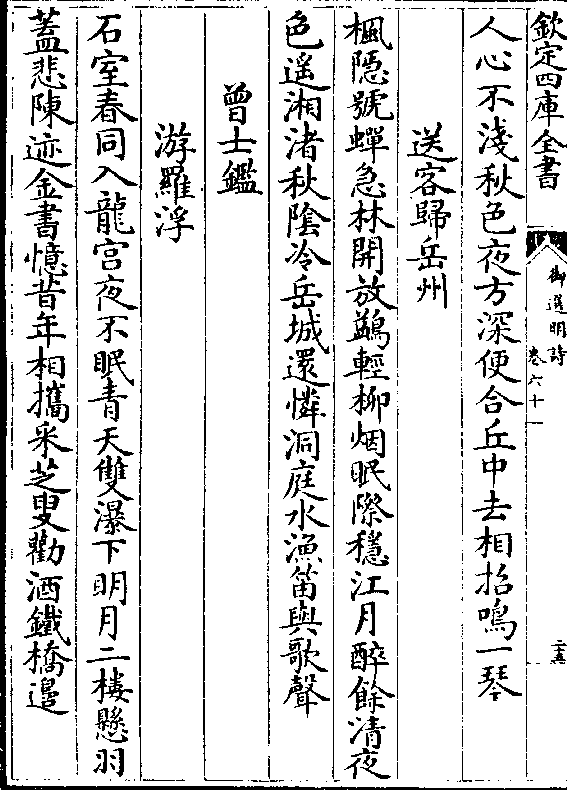 欽定四庫全書
御選明詩
卷六十一
二五
人心不淺秋色夜方深便合丘中去相招鳴一琴
送客歸岳州
楓隠號蟬急林開放鷁輕柳烟眠際穩江月醉餘清夜
色遥湘渚秋陰冷岳城還憐洞庭水漁笛與歌聲
曾士鑑
游羅浮
石室春同入龍宫夜不眠青天雙瀑下明月二樓懸羽
蓋悲陳迹金書憶昔年相攜采芝叟勸酒鐵橋邉